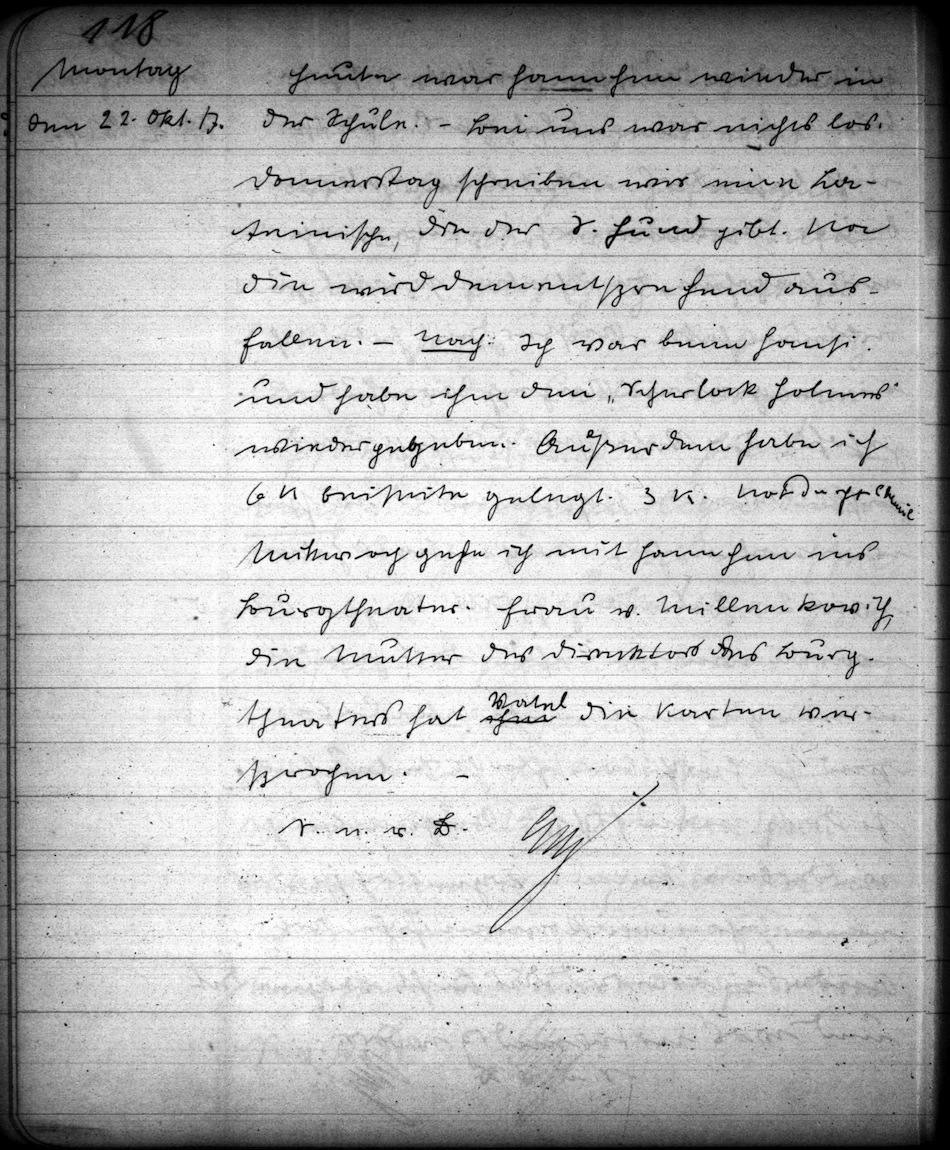 118
Montag
den 22. Okt. 17.
Heute war Hannchen wieder in
der Schule. – Bei uns war nichts los.
Donnerstag schreiben wir eine La-
teinische, die der S. Hund gibt. No
die wird dementsprechend aus-
fallen. – Nach: Ich war beim Hansi.
und habe ihm den „Scherlock Holmes"
wiedergegeben. Außerdem habe ich
6 K beiseite gelegt. 3 K.
Mittwoch gehe ich mit Hannchen ins
Burgtheater. Frau v. Millenkovich,
die Mutter des Direktors des Burg-
theaters hat Vatel ihne die Karten ver-
sprochen. –
S. n. w. B.